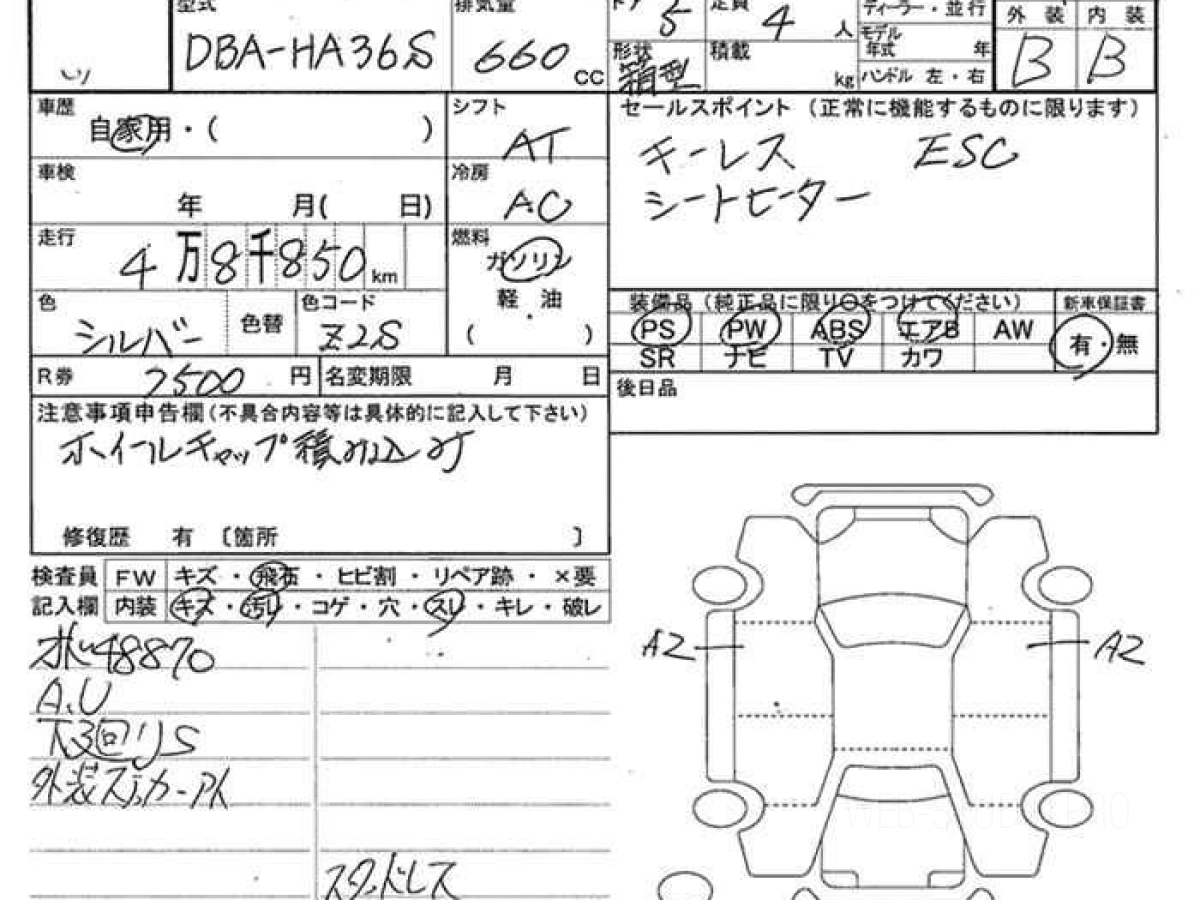 型式 排気量 ドア 5 定員 4 人 ディーラー・並行 外装 内装
DBA-HA36S 660 cc 形状 箱型 積載 kg モデル年式 年 ハンドル 左・右 B B
車歴 自家用・( ) シフト AT
セールスポイント (正常に機能するものに限ります)
キーレス ESC
シートヒーター
車検 年 月( 日) 冷房 AC
走行 4万8千850km 燃料 ガソリン
軽・油
( )
色 シルバー 色替 色コード Z2S
装備品 (純正品に限り〇をつけてください) 新車保証書
PS PW ABS エアB AW 有・無
SR ナビ TV カワ
R券 7500 円 名変期限 月 日
後日品
注意事項申告欄(不具合内容等は具体的に記入して下さい)
ホイールキャップ積み込み
修復歴 有 〔箇所 〕
検査員 FW キズ・飛石・ヒビ割・リペア跡・×要
記入欄 内装 キズ・汚レ・コゲ・穴・スレ・キレ・破レ
48870
A.U
下回りS
外装ステッカーアト
スタッドレス
A2 A2